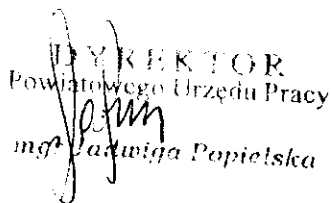 DYREKTOR
Powiatowego Urzędu Pracy
mgr Jadwiga Popielska